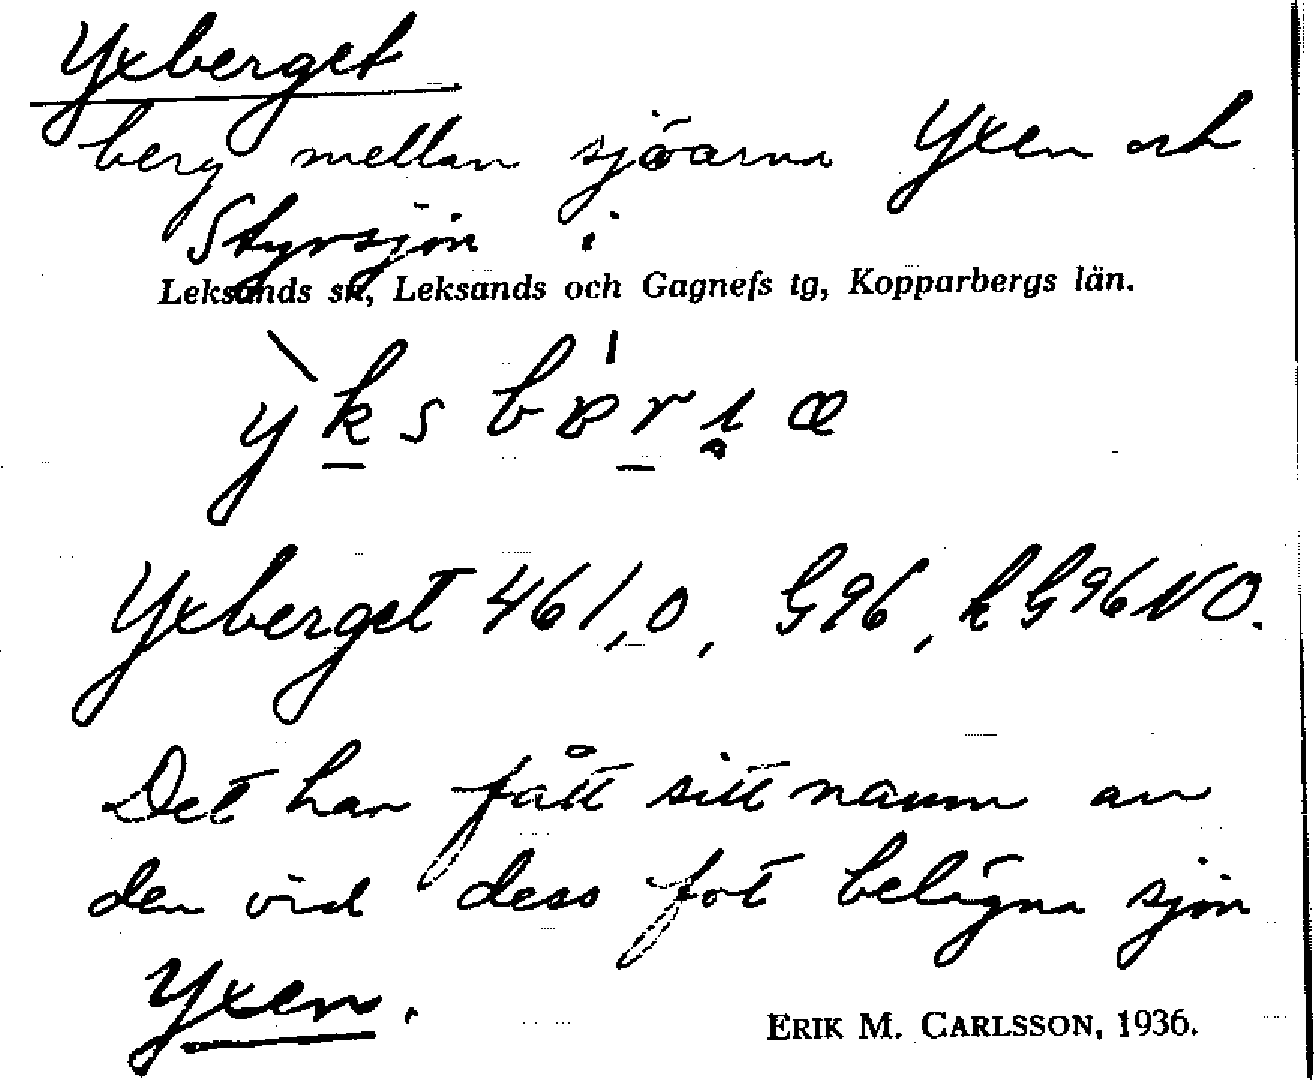 Yxberget
berg mellan sjöarna Yxen och
Styrsjön i
Leksands sn, Leksands och Gagnefs tg, Kopparbergs län.
Yxberget 461,0, G96, k G96NO.
Det har fått sitt namn av
den vid dess fot belägna sjön
Yxen.
ERIK M. CARLSSON, 1936.